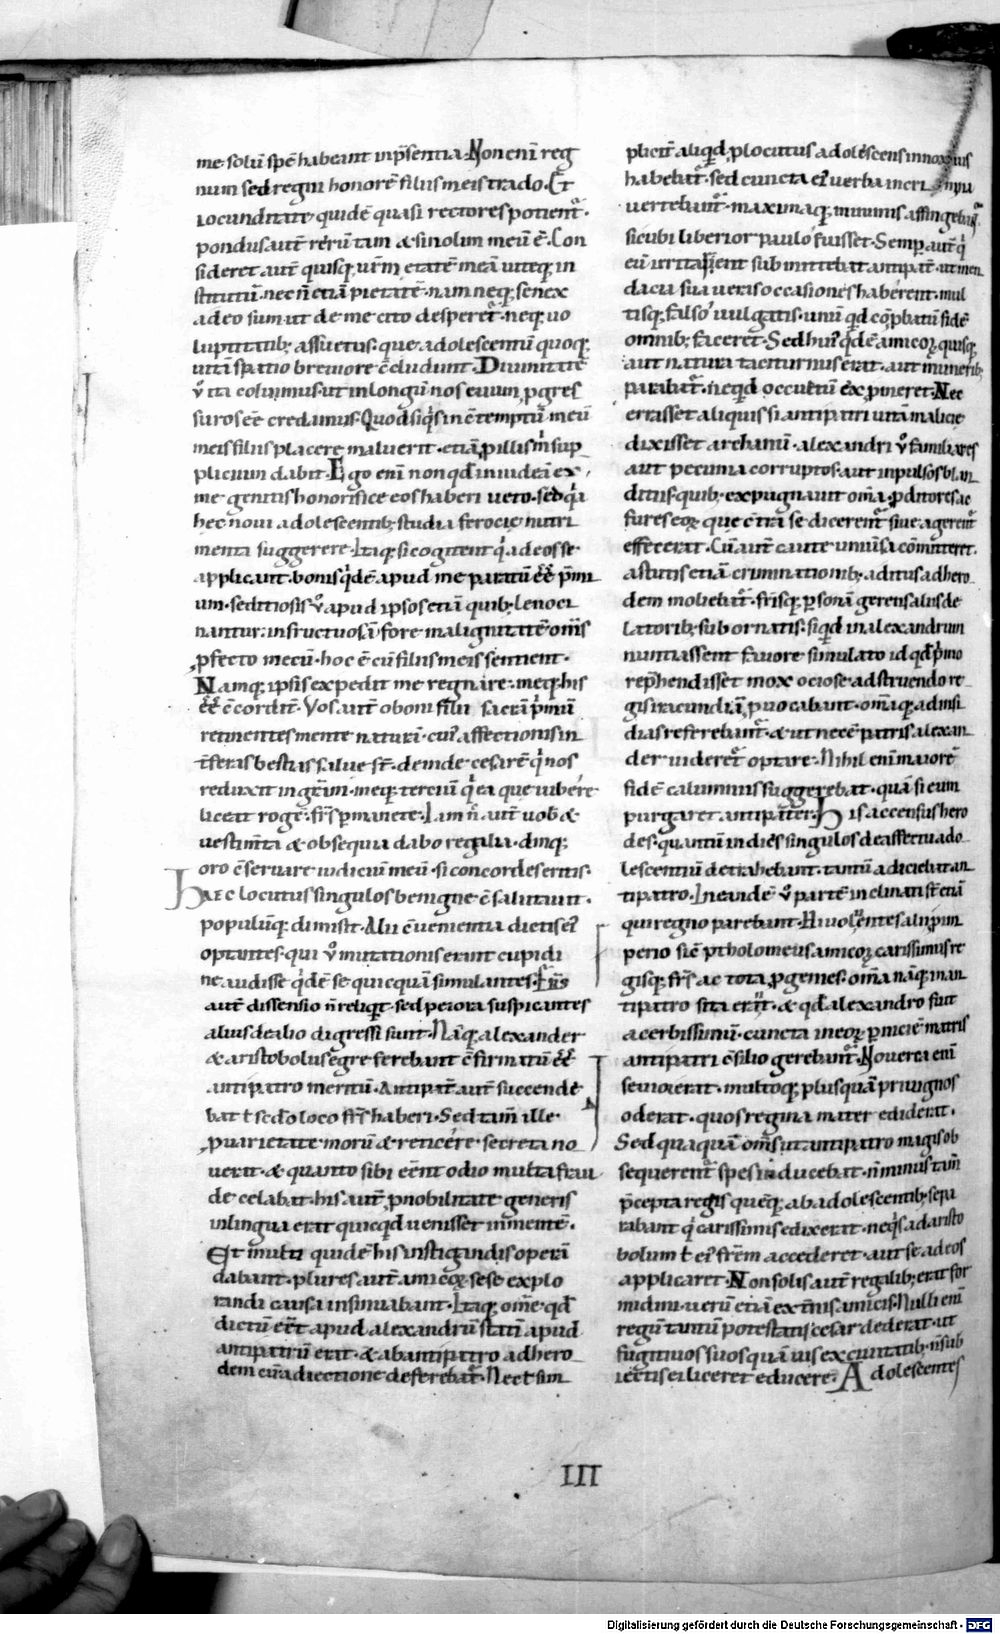 me solū spē habeant in p̄sentia. Non enī reg
num sed regni honorē filiis meis trado. Et
iocunditate quidē quasi rectores potient᷑.
pondus aut̄ rerū tam & si nolim meū ē. Con
sideret aut̄ quisq; etatē meā uiteq; in
stitutū. nec n̄ etiā pietatē. nam neq; senex
adeo sum ut de me cito desperet᷑. neq; uo
luptatib; assuetus. que adolescentiū quoq;
uitā spatio breuiore c̄cludunt. Diuinitatē
ū ita columus. ut in longū nos euum p̄gres
suros eē credamus. Quod siq̇s in c̄temptū meū
meis filiis placere maluerit. etiā p illis m̄ sup
plicium dabit. Ego enī non qđ inuideā ex
me genitis honorifice eos haberi ueto. sed q̇a
hec noui adolescentib; studia ferocie nutri
menta suggerere. Itaq; si cogitent q̇ ad eos se
applicant. bonis q̇dē apud me paratū eē p̄mi
um. seditiosis ū apud ipsos etiā quib; lenoci
nantur. infructuosā fore malignitatē. om̄s
p̄fecto mecū. hoc ē cū filiis meis sentient.
Namq; ipsis expedit me regnare. meq; his
eē c̄cordē. Vos aut̄ o boni filii sacrā primū
retinentes mente naturā. cui᷒ affectionis in
t̄ feras bestias salue st̄. deinde cesarē q̇ nos
reduxit in gr̄am. meq; terciū q̇ ea que iubere
liceat rogē. fr̄s p̄manete. Iam n̄ aut̄ uob &
uestimta & obsequia dabo regalia. dmq;
oro c̄seruare iudiciū meū. si concordes eritis.
Haec locutus singulos benigne c̄salutauit.
populūq; dimisit. Alii c̄uenientia dictis ei᷒
optantes. qui ū mutationis erant cupidi
ne audisse q̇dē se quicquā simulantes. Fr̄s
aut̄ dissensio n̄ reliqt. sed peiora suspicantes
alius de alio digressi sunt. Nāq; alexander
& aristobolus egre ferebant c̄firmatū eē
antipatro meritū. Antipat̄ aut̄ succende
bat ł scđo loco fr̄s haberi. Sed tam̄ ille.
p uarietate morū & reticere secreta no
uerat. & quanto sibi eent odio multa frau
de celabat. his aut̄ p nobilitate generis
in lingua erat quicqđ uenisset in mentē.
Et multi quidē his instigandis operā
dabant. plures aut̄ amicoꝝ sese explo
randi causa insinuabant. Itaq; om̄e qđ
dictū eēt apud alexandrū statī apud
antipatrū erat. & ab antipatro ad hero
dem cū adiectione deferebat᷑. Nec t̄ sim
pliciт̄ aliqđ plocutus adolescens innoxius
habebat᷑. sed cuncta ei᷒ uerba in crimina
uertebant᷑. maximaq; minimis affingebant᷑.
sicubi liberior paulo fuisset. Semp aut̄ q̇
eū irritassent submittebat antipat̄. ut men
dacia sua ueris occasiones haberent. mul
tisq; falso uulgatis. unū qđ cōpbatū fidē
omnib; faceret. Sed hui᷒ q̇dē amicoꝝ quisq;
aut natura taciturnus erat. aut munerib;
parabat᷑. neqd occultū exp̄meret. Nec
errasset aliquis si antipatri uitā malicie
dixisset archanū. alexandri ū familiares
aut pecunia corruptos. aut inpulsos blan
ditiis. quib; expugnauit om̄a. p̄ditores ac
fures eoꝝ que c̄tra se dicerent᷑ siue agerent᷑
effecerat. Cū aut̄ caute uniuersa cōmitteret.
astutis etiā criminationib; aditus ad hero
dem moliebat᷑. fr̄isq; psonā gerens aliis de
latorib; subornatis. siqđ in alexandrum
nuntiassent fauore simulato id qđ primo
rep̄hendisset mox ociose adstruendo re
gis iracundiā p̄uocabant. om̄iaq; ad insi
dias referebant᷑. & ut necē patris alexan
der uideret᷑ optare. Nihil enī maiorē
fidē calumniis suggerebat. quā si eum
purgaret antipater. His accensus hero
des. quantū in dies singulos de affectu ado
lescentiū detrahebant. tantū adiciebat an
tipatro. In eandē ū partē inclinati st̄ etiā
qui regno parebant. Hi uolentes alii p im
perio sic̄ ptholomeus amicoꝝ carissimus re
gisq; fr̄s ac tota p̄genies. om̄a nāq; in an
tipatro sita erant. & qđ alexandro fuit
acerbissimū. cuncta in eoꝝ pniciē matris
antipatri c̄silio gerebant᷑. Nouerca enī
seuior erat. multoq; plus quā priuignos
oderat. quos regina mater ediderat.
Sed quaquā om̄s ut antipatro magis ob
sequerent᷑ spes inducebat. n̄ minus tam̄
p̄cepta regis quēq; ab adolescentib; sepa
rabant q̇ carissimis edixerat. neq̇s ad aristo
bolum ł ei᷒ fr̄em accederet. aut se ad eos
applicaret. Non solis aut̄ regalib; erat for
midini. uerū etiā ext̄nis amicis. Nulli enī
regū tantū potestatis cesar dederat. ut
fugitiuos suos quā uis ex ciuitatib; n̄ sub
iectis ei liceret educere. Adolescentes
III
Digitalisierung gefördert durch die Deutsche Forschungsgemeinschaft - DFG